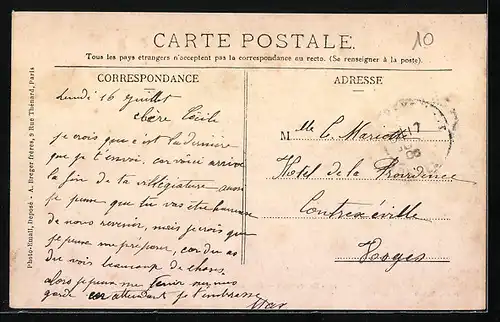 10
CARTE POSTALE.
Tous les pays étrangers n'acceptent pas la correspondance au recto. (Se renseigner à la poste).
CORRESPONDANCE
ADRESSE
Photo-Email, Déposé - A. Breger frères, 9 Rue Thénard, Paris
Lundi 16 juillet
chère Cécile
je crois que c'est la dernière
que je t'envoi, car voici arrivé
la fin de ta villégiature aussi
je pense que tu vas etre heureuse
de nous revenir, mais je crois que
je pense me
du vois beaucoup de choses
alors je pense me tenir sur mes
garde en attendant je t'embrasse
Melle C.
Hotel de la Providence
Contrexéville
Vosges